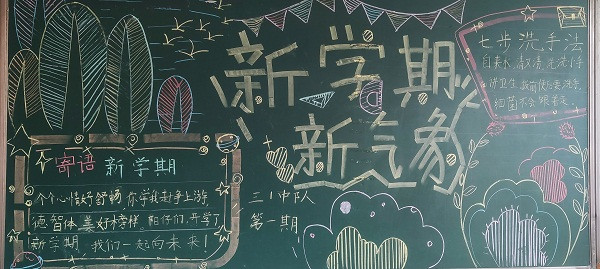 新学期
新气象
七步洗手法
自来水,
洗小手
讲卫生,
细菌不会跟着走.
寄语 新学期
个个心情好舒畅,你学我赶争上游
德智体美好榜样,
开学了
新学期,我们一起向未来!
三1中队
第一期